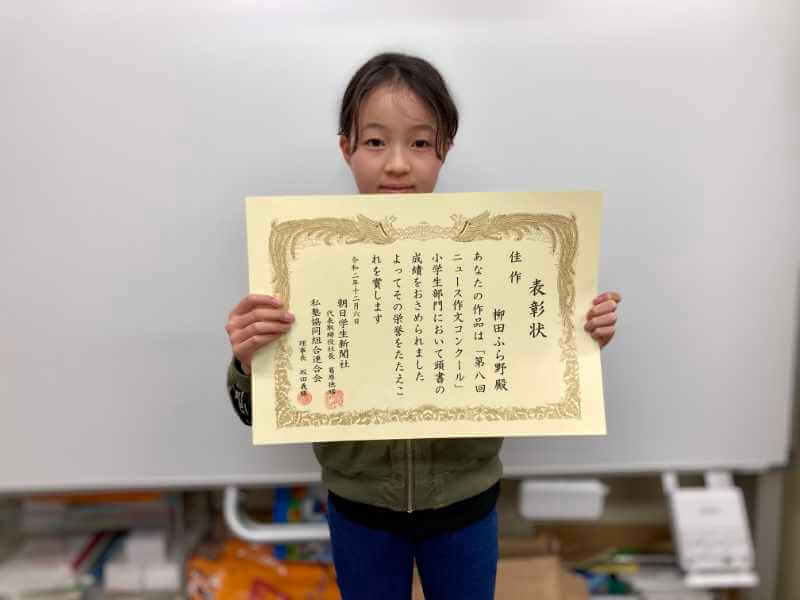 表彰状
佳作
柳田ふら野殿
あなたの作品は「第八回
ニュース作文コンクール」
小学生部門において頭書の
成績をおさめられました
よってその栄誉をたたえこ
れを賞します
令和二年十二月六日
朝日学生新聞社
代表取締役社長
私塾協同組合連合会
理事長 坂田義勝